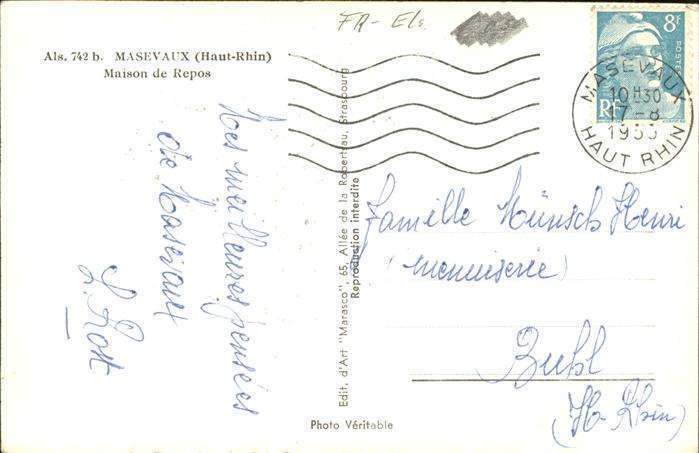 FR - Els
Als. 742 b. MASEVAUX (Haut-Rhin)
Maison de Repos
8F
POSTES
RF
MASEVAUX
10H30
7-8
HAUT RHIN
Mes meilleures pensées
de Masevaux
L. Rost
Edit. d'Art "Marasco", 65, Allée de la Robertsau, Strasbourg
Reproduction interdite
Famille Münsch Henri
(menuiserie)
Buhl
(Ht-Rhin)
Photo Véritable